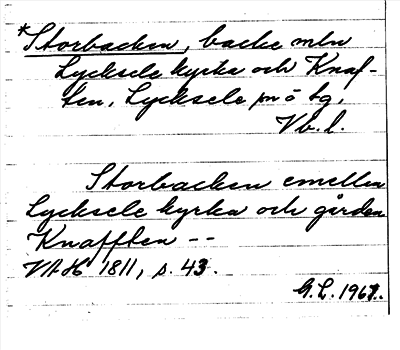 *Storbacken, backe mln
Lycksele kyrka och Knaf-
ten, Lycksele sn o tg,
Vb. l.
Storbacken emellan
Lycksele kyrka och gården
Knafften --
VAH 1811, s. 43.
G. L. 1967.